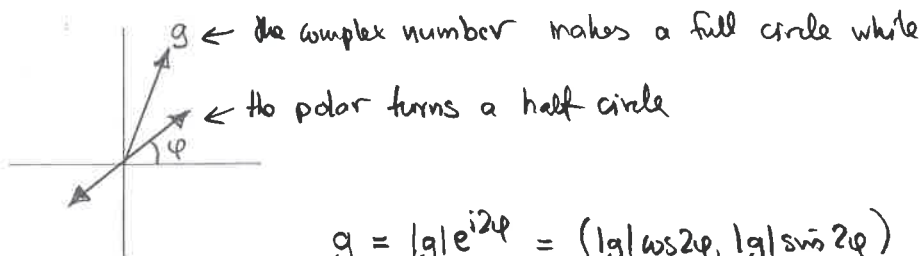 g ← the complex number makes a full circle while
← the polar turns a half circle
φ
g = |g|e^{i2φ} = (|g| cos2φ, |g| sin2φ)